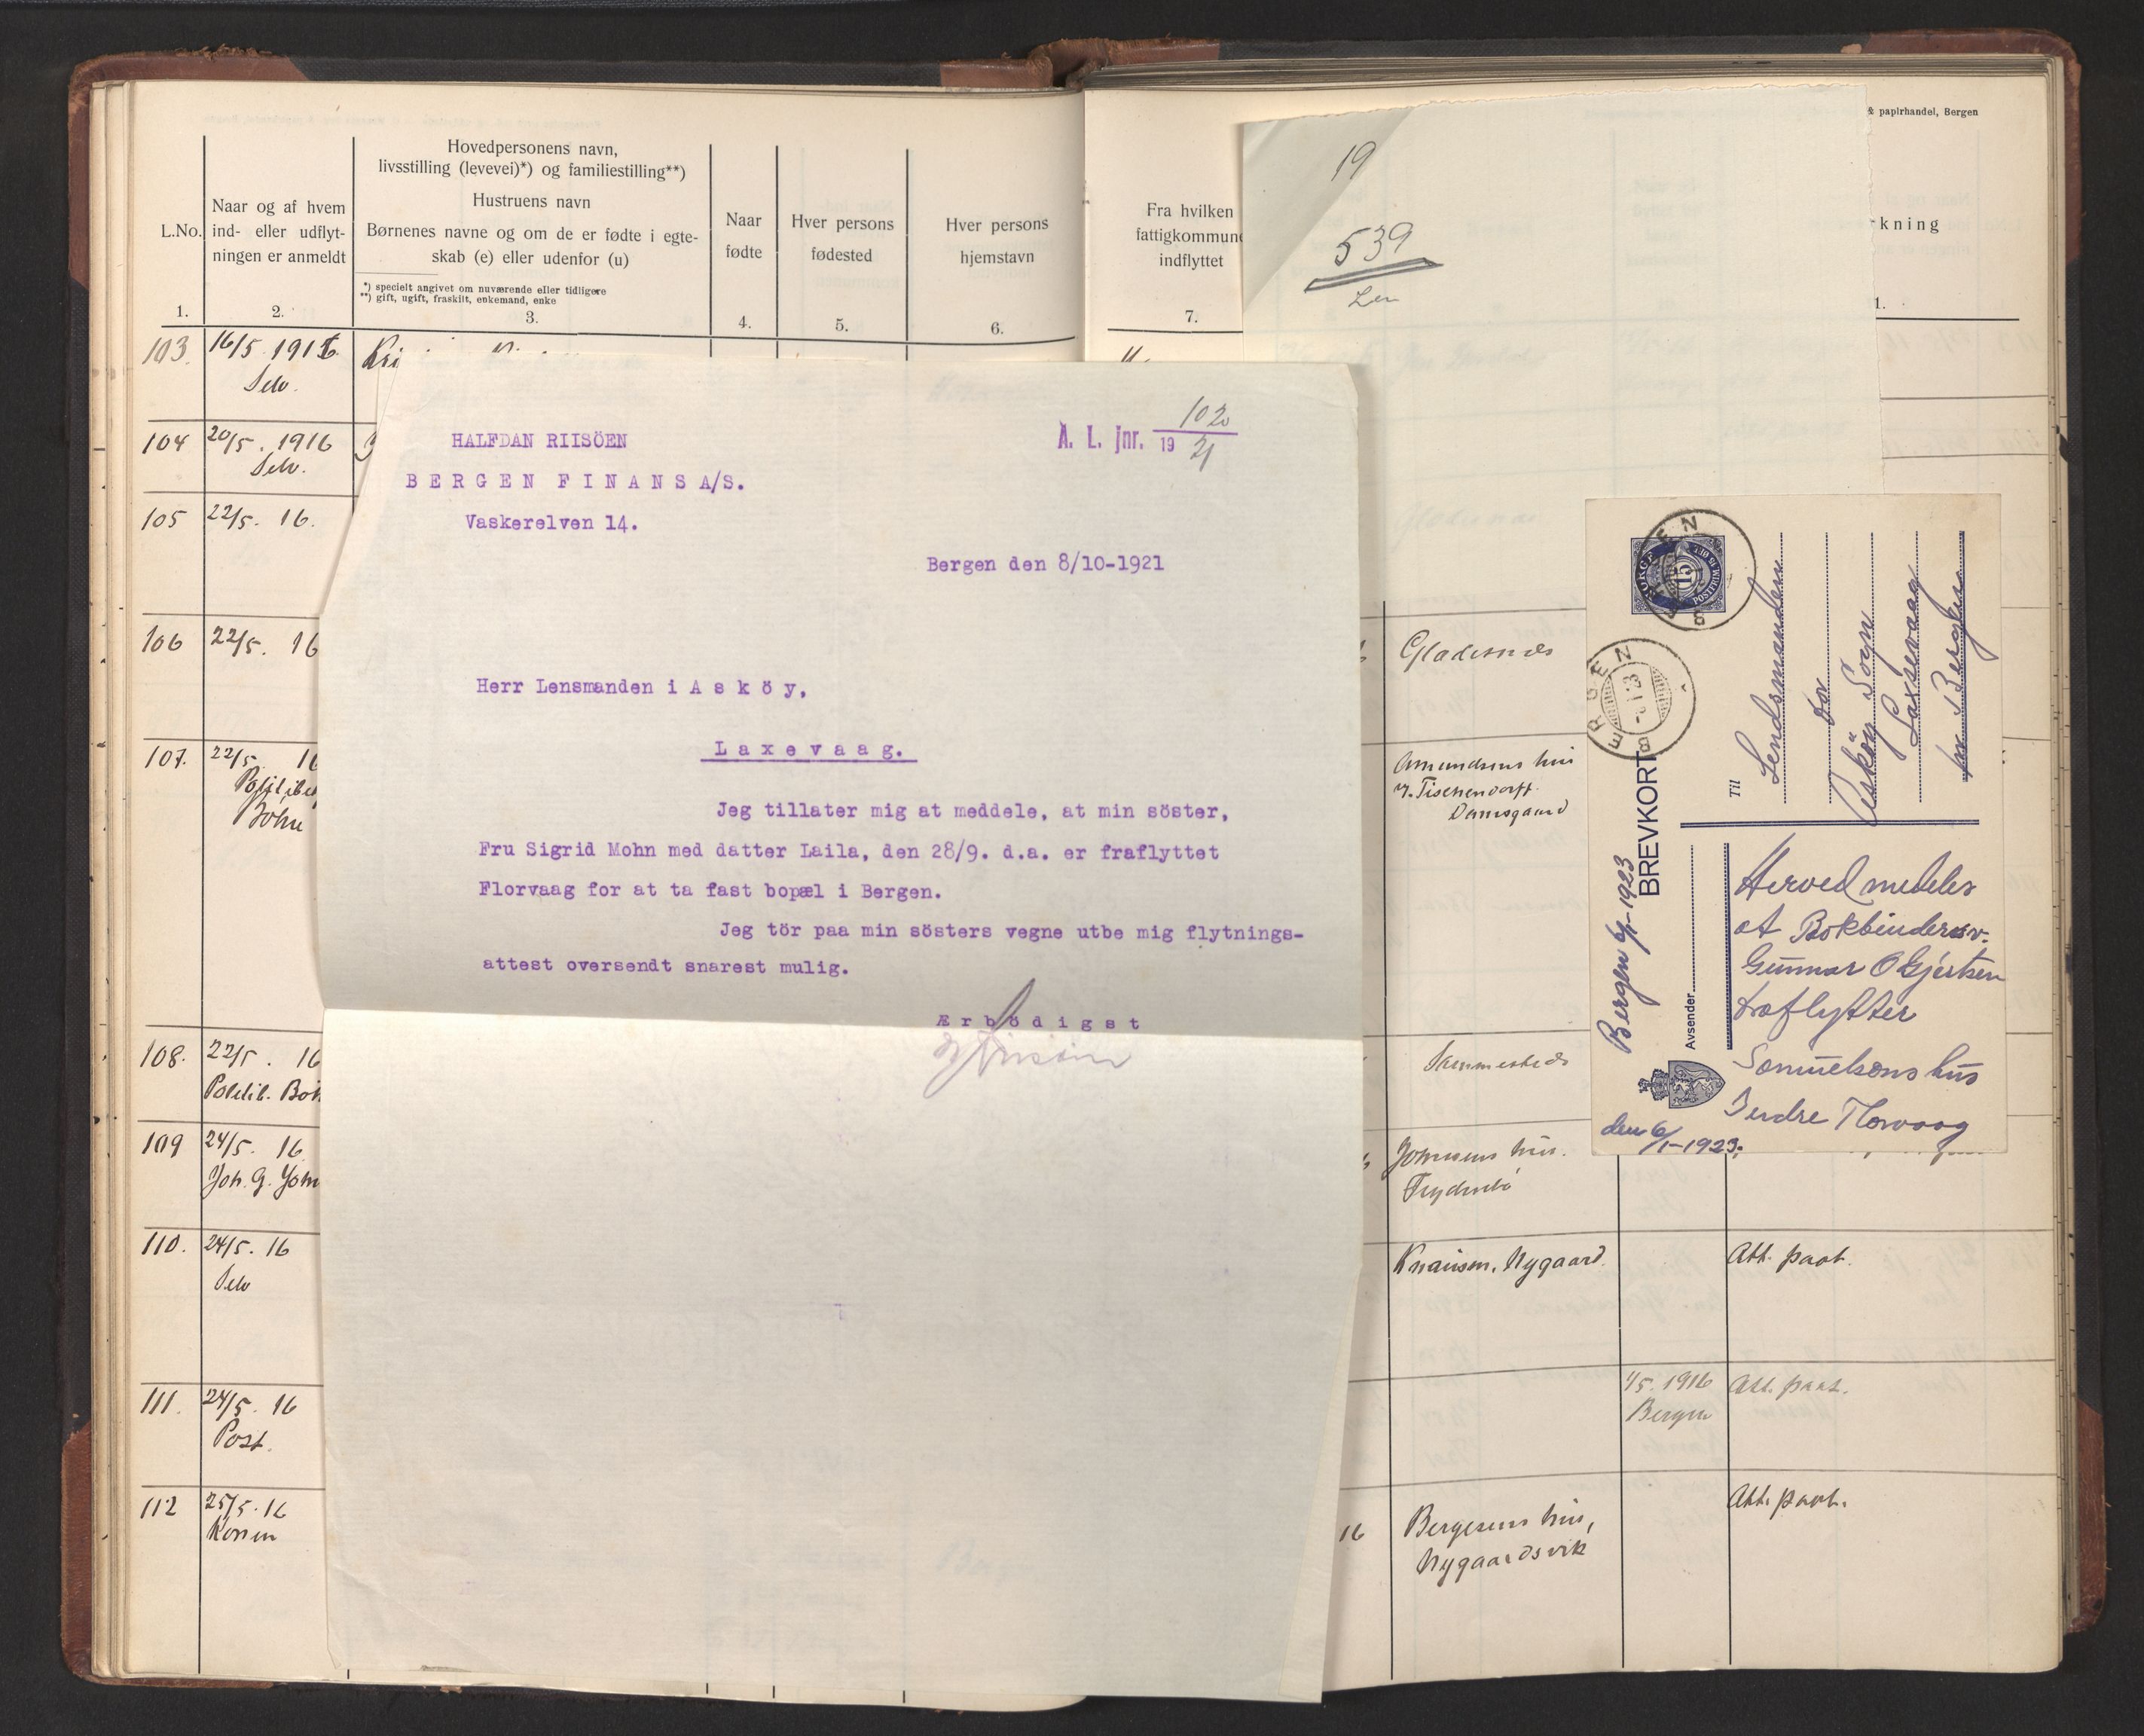 L.No.
1.
Naar og af hvem
ind- eller udflyt-
ningen er anmeldt
2.
Hovedpersonens navn,
livsstilling (levevei)*) og familiestilling**)
Hustruens navn
Børnenes navne og om de er fødte i egte-
skab (e) eller udenfor (u)
*) specielt angivet om nuværende eller tidligere
**) gift, ugift, fraskilt, enkemand, enke
3.
Naar
fødte
4.
Hver persons
fødested
5.
Hver persons
hjemstavn
6.
Fra hvilken
fattigkommune
indflyttet
7.
& papirhandel, Bergen
kning
1.
19
539
103. 16/5 1916
Selv.
104 20/5. 1916
Selv.
105 22/5. 16.
106 22/5. 16
107. 22/5 16
108. 22/5. 16
109 24/5. 16.
Joh. G.
110. 24/5. 16
Selv
111. 24/5. 16
Post.
112 25/5. 16
Konen
HALFDAN RIISÖEN
BERGEN FINANS A/S.
Vaskerelven 14.
A. L. jnr. 1020
19 21
Bergen den 8/10-1921
Herr Lensmanden i Asköy,
Laxevaag.
Jeg tillater mig at meddele, at min söster,
Fru Sigrid Mohn med datter Laila, den 28/9. d.a. er fraflyttet
Florvaag for at ta fast bopæl i Bergen.
Jeg tör paa min sösters vegne utbe mig flytnings-
attest oversendt snarest mulig.
Ærbödigst
HRiisöen
Gladesnæs
Amundsens hus
v. Tischendorff
Damsgaard
Sammesteds
Johnsens hus.
Frydenbö
Knausen, Nygaard.
Att. paat.
1/5. 1916
Bergen
Att. paat.
16
Bergesens hus,
Nygaardsvik
Att. paat.
BERGEN
NORGE
15
BERGEN
BREVKORT
Til
Lendsmanden
for
Asköen Sogn
Laxsevaag
pr Bergen
Avsender
Bergen 6/1-1923
Herved medeles
at Bokbindersv.
Gunnar O Gjertsen
fraflytter
Samuelsens hus
Indre Florvaag
den 6/1-1923.